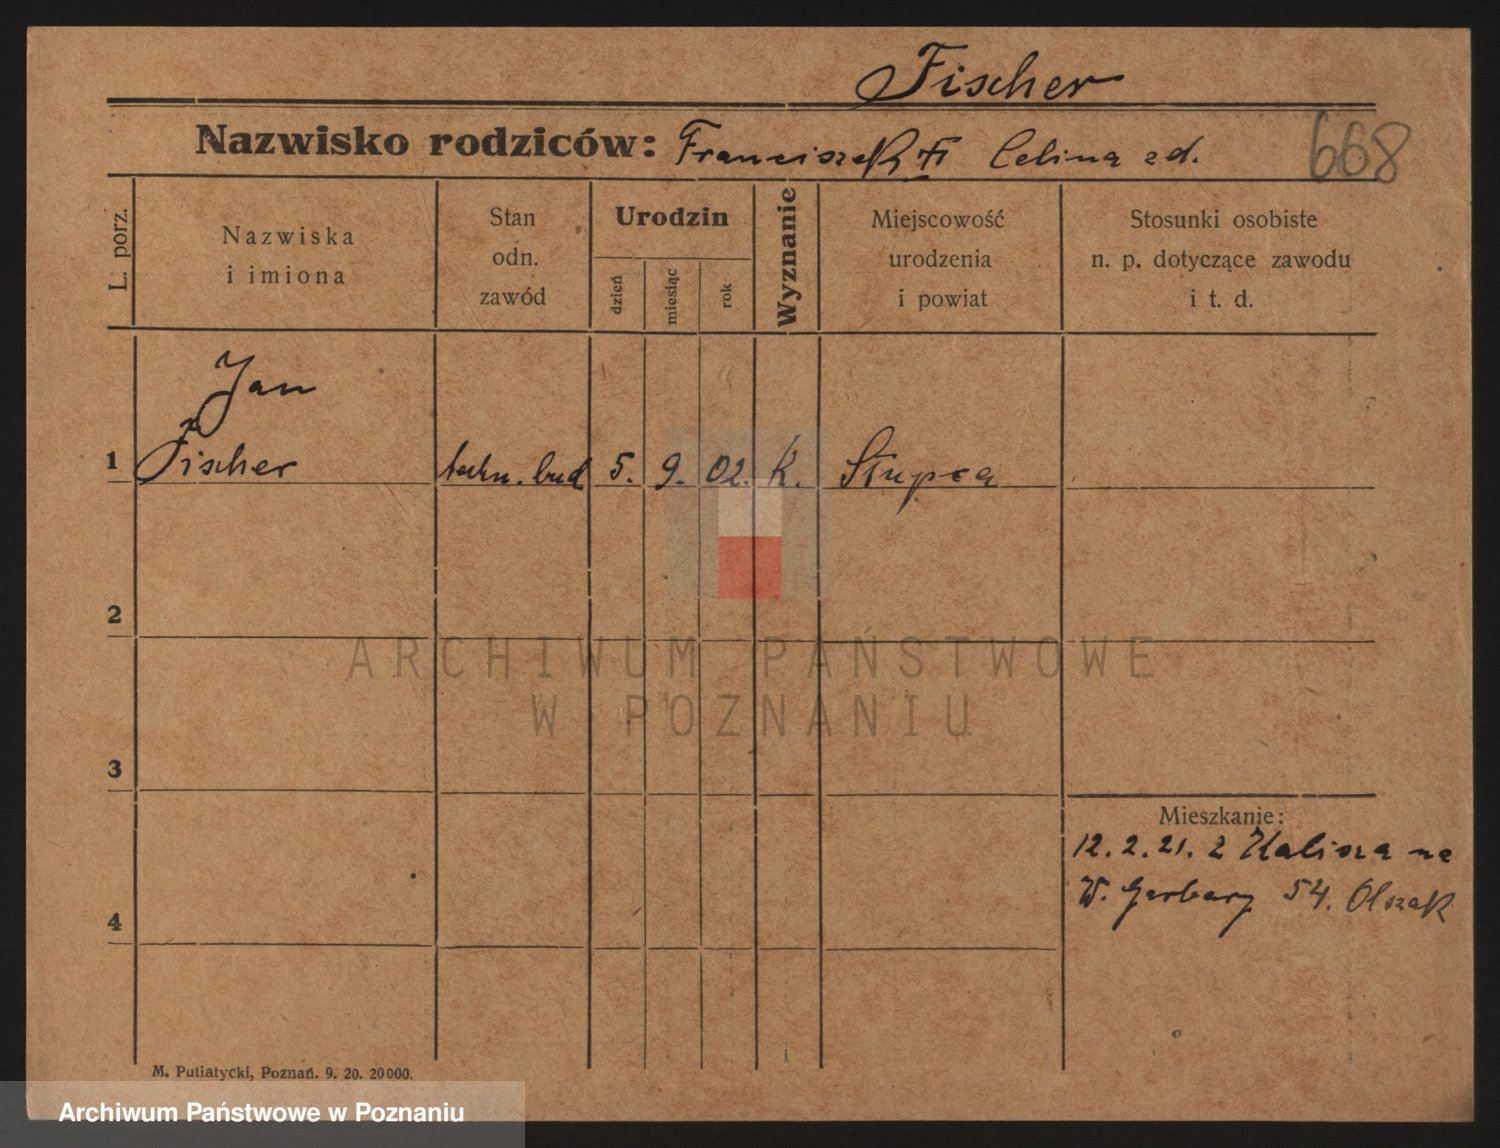 Fischer
Nazwisko rodziców: Franciszek Celina zd.
668
L. porz.
Nazwiska
i imiona
Stan
odn.
zawód
Urodzin
dzień
miesiąc
rok
Wyznanie
Miejscowość
urodzenia
i powiat
Stosunki osobiste
n. p. dotyczące zawodu
i t. d.
Jan
1 Fischer techn. bud 5. 9. 02. K. Słupca
2
ARCHIWUM PAŃSTWOWE
W POZNANIU
3
Mieszkanie:
12. 2. 21. z Kalisza na
4 W. Garbary 54. Olszak
M. Putiatycki, Poznań. 9. 20. 20 000.
Archiwum Państwowe w Poznaniu